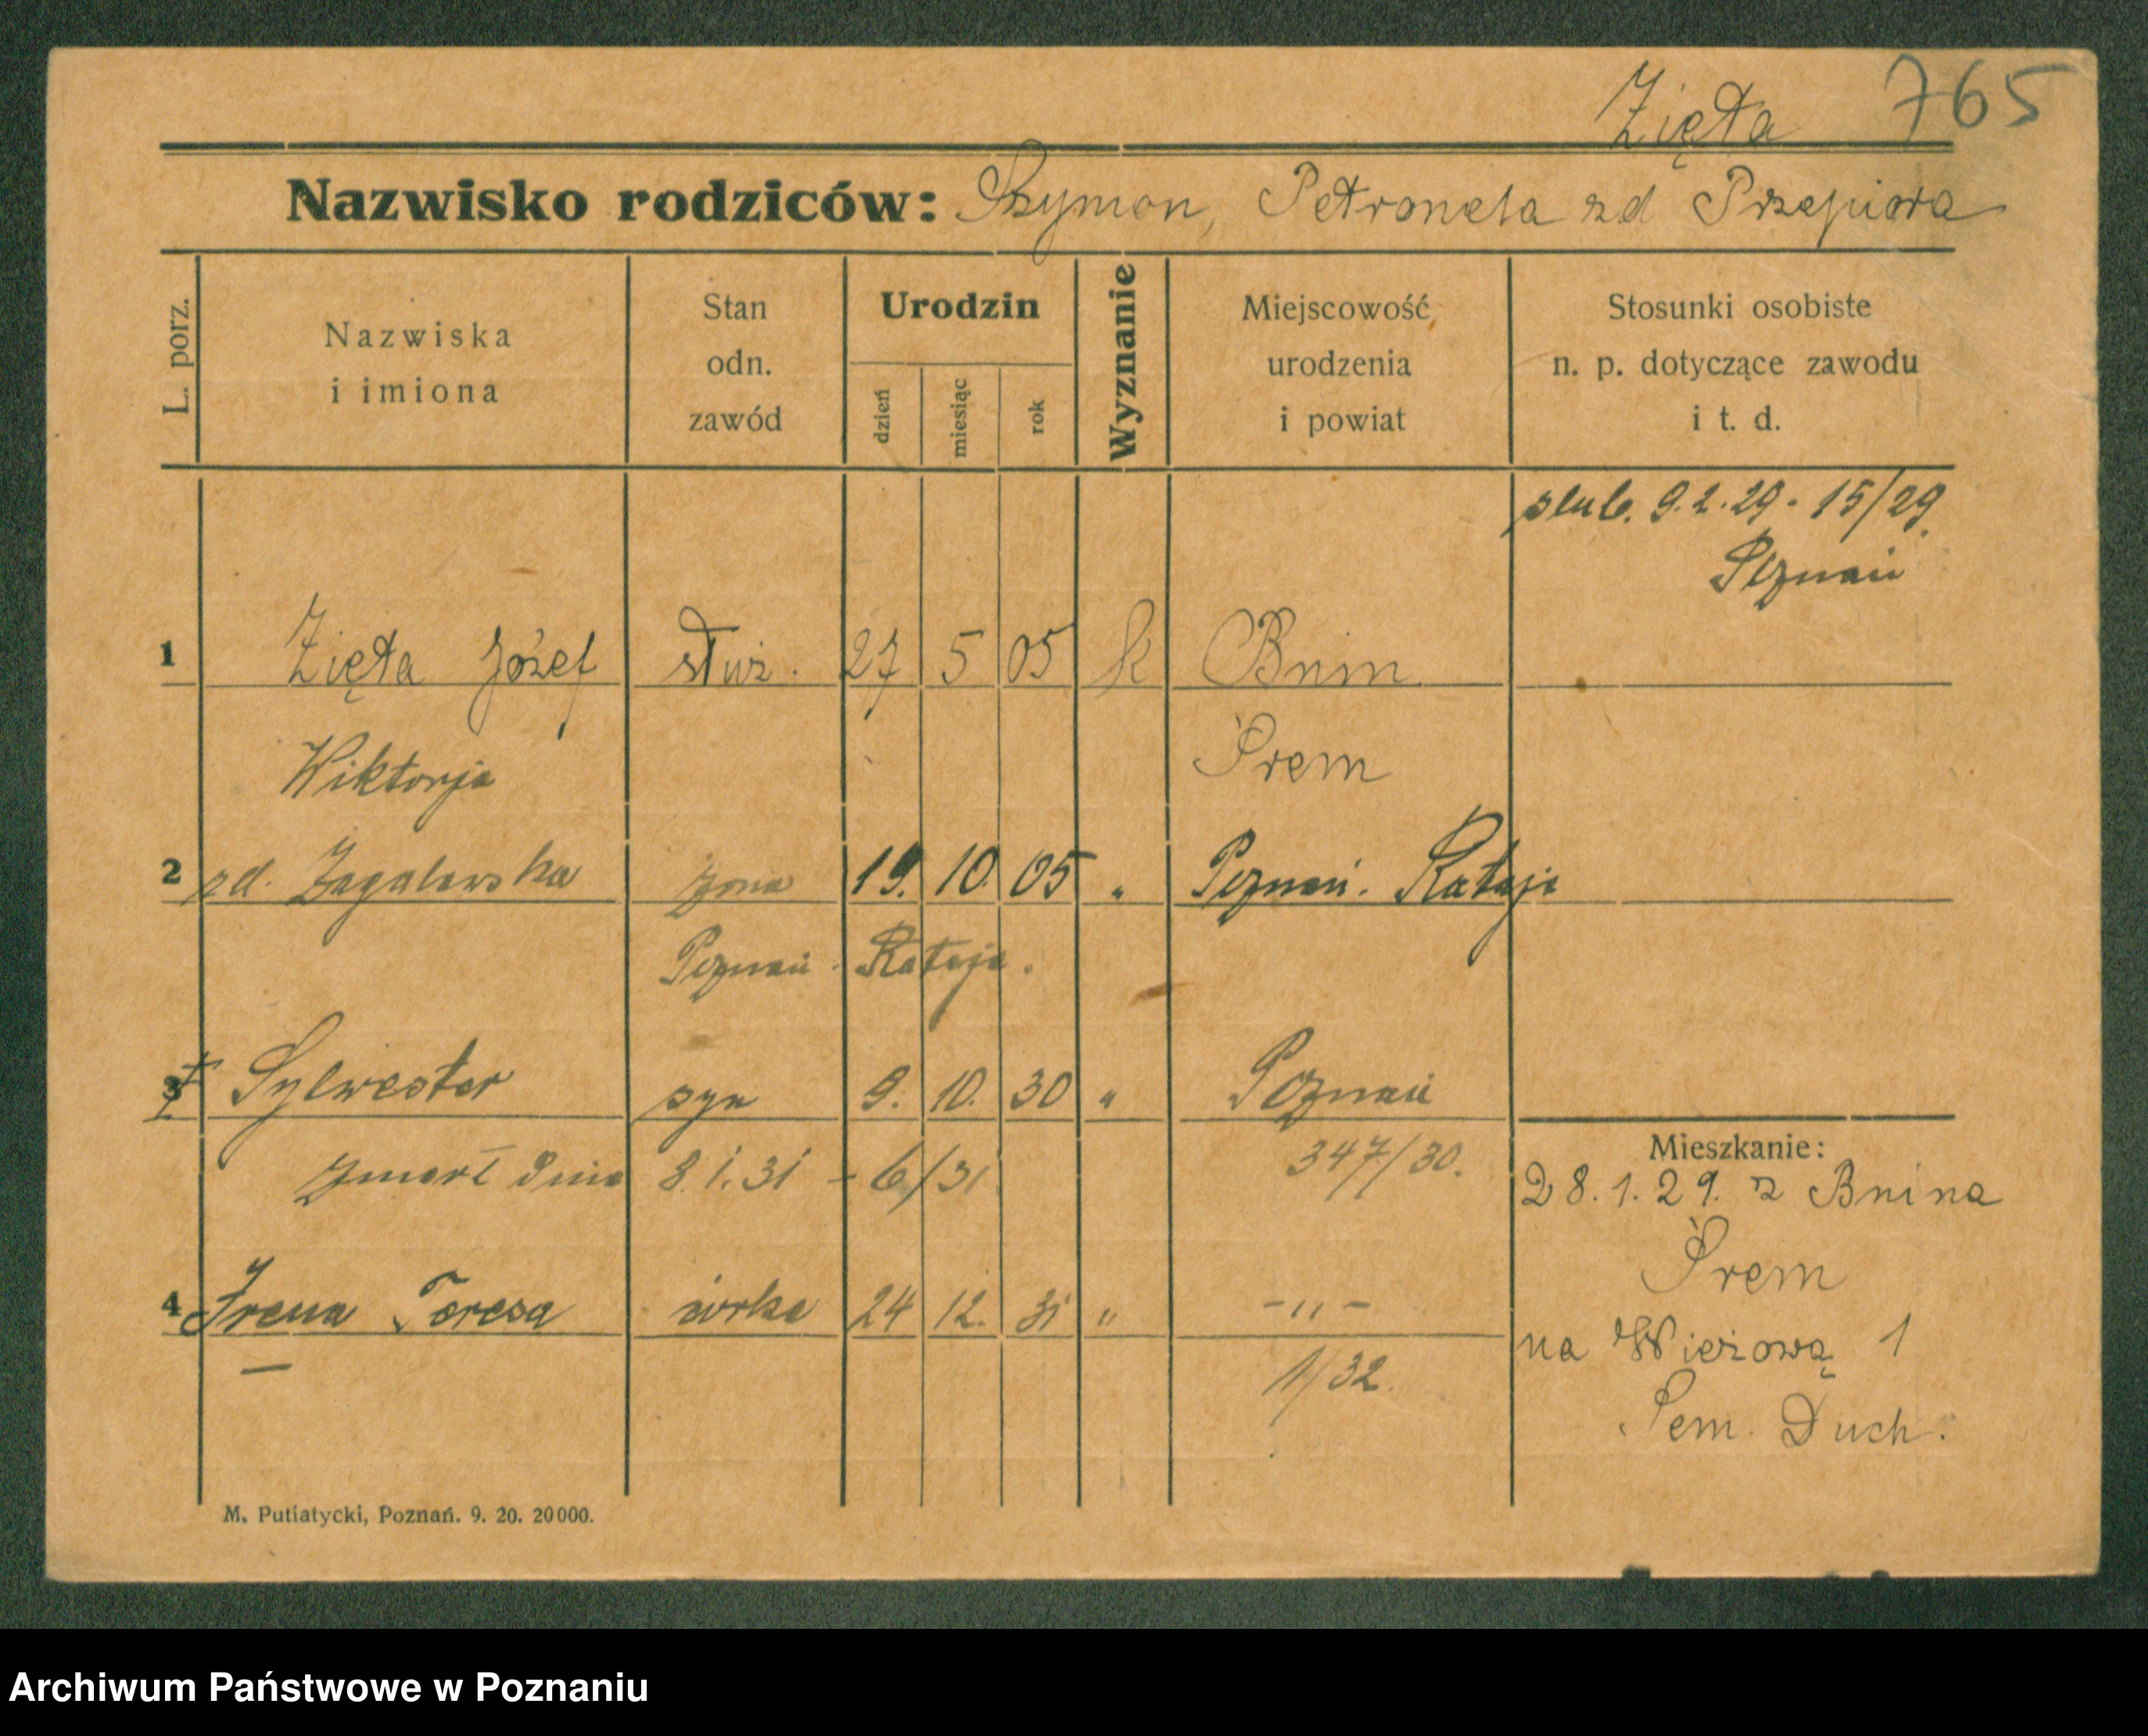 Zięta 765
Nazwisko rodziców: Szymon, Petronela zd Przepiora
L. porz.
Nazwiska
i imiona
Stan
odn.
zawód
Urodzin
dzień
miesiąc
rok
Wyznanie
Miejscowość
urodzenia
i powiat
Stosunki osobiste
n. p. dotyczące zawodu
i t. d.
ślub. 9.2.29 - 15/29
Poznań
1 Zięta Józef służ. 27 5 05 k Bnin
Wiktorja Śrem
2 zd. Zagalewska żona 19. 10. 05 " Poznań. Rataje
Poznań. Rataje.
3 † Sylwester syn 9. 10. 30 " Poznań
zmarł dnia 8.1.31 - 6/31 347/30.
4 Irena Teresa córka 24 12. 31 " - " -
1/32.
Mieszkanie:
28.1.29. z Bnina
Śrem
na Wieżową 1
Sem. Duch.
M. Putiatycki, Poznań. 9. 20. 20000.
Archiwum Państwowe w Poznaniu